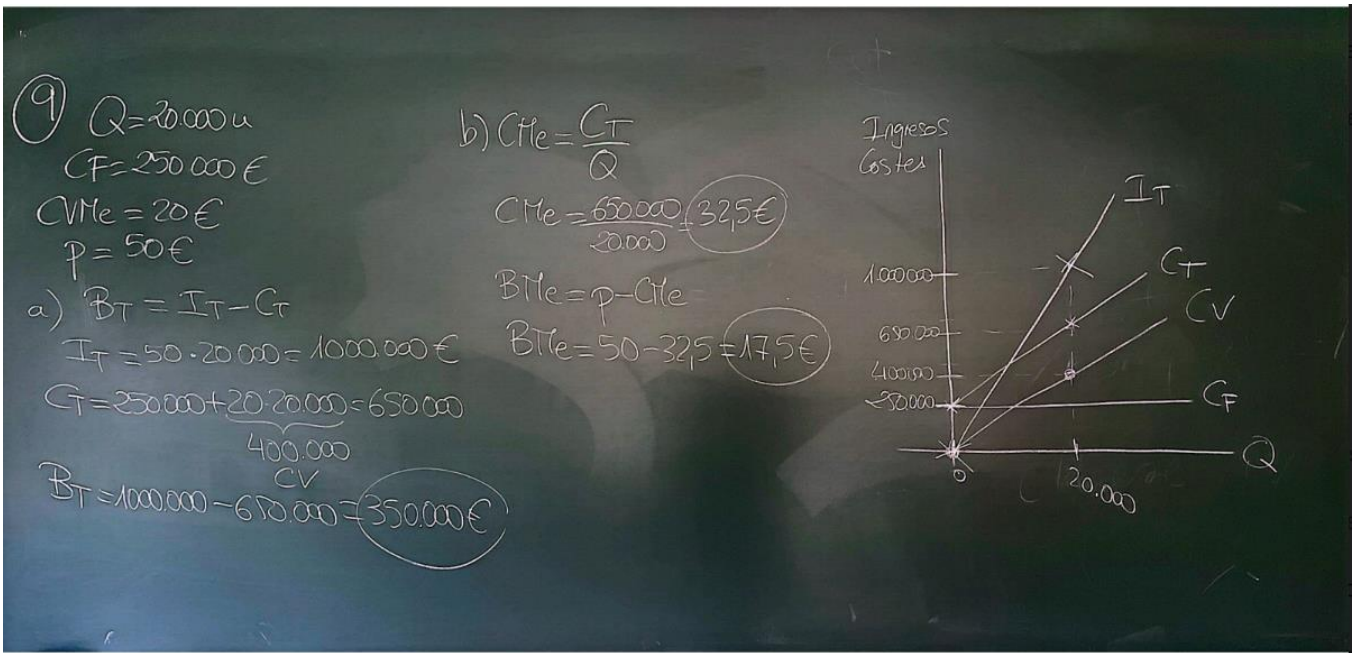 9 Q=20.000u
CF=250.000€
CVMe=20€
p=50€
a) BT=IT-CT
IT=50·20.000=1000.000€
CT=250.000+20·20.000=650.000
400.000
CV
BT=1000.000-650.000=350.000€
b) CMe=CT/Q
CMe=650.000/20.000=32,5€
BMe=p-CMe
BMe=50-32,5=17,5€
Ingresos
Costes
IT
1.000.000
CT
CV
650.000
400.000
250.000
CF
Q
0
20.000